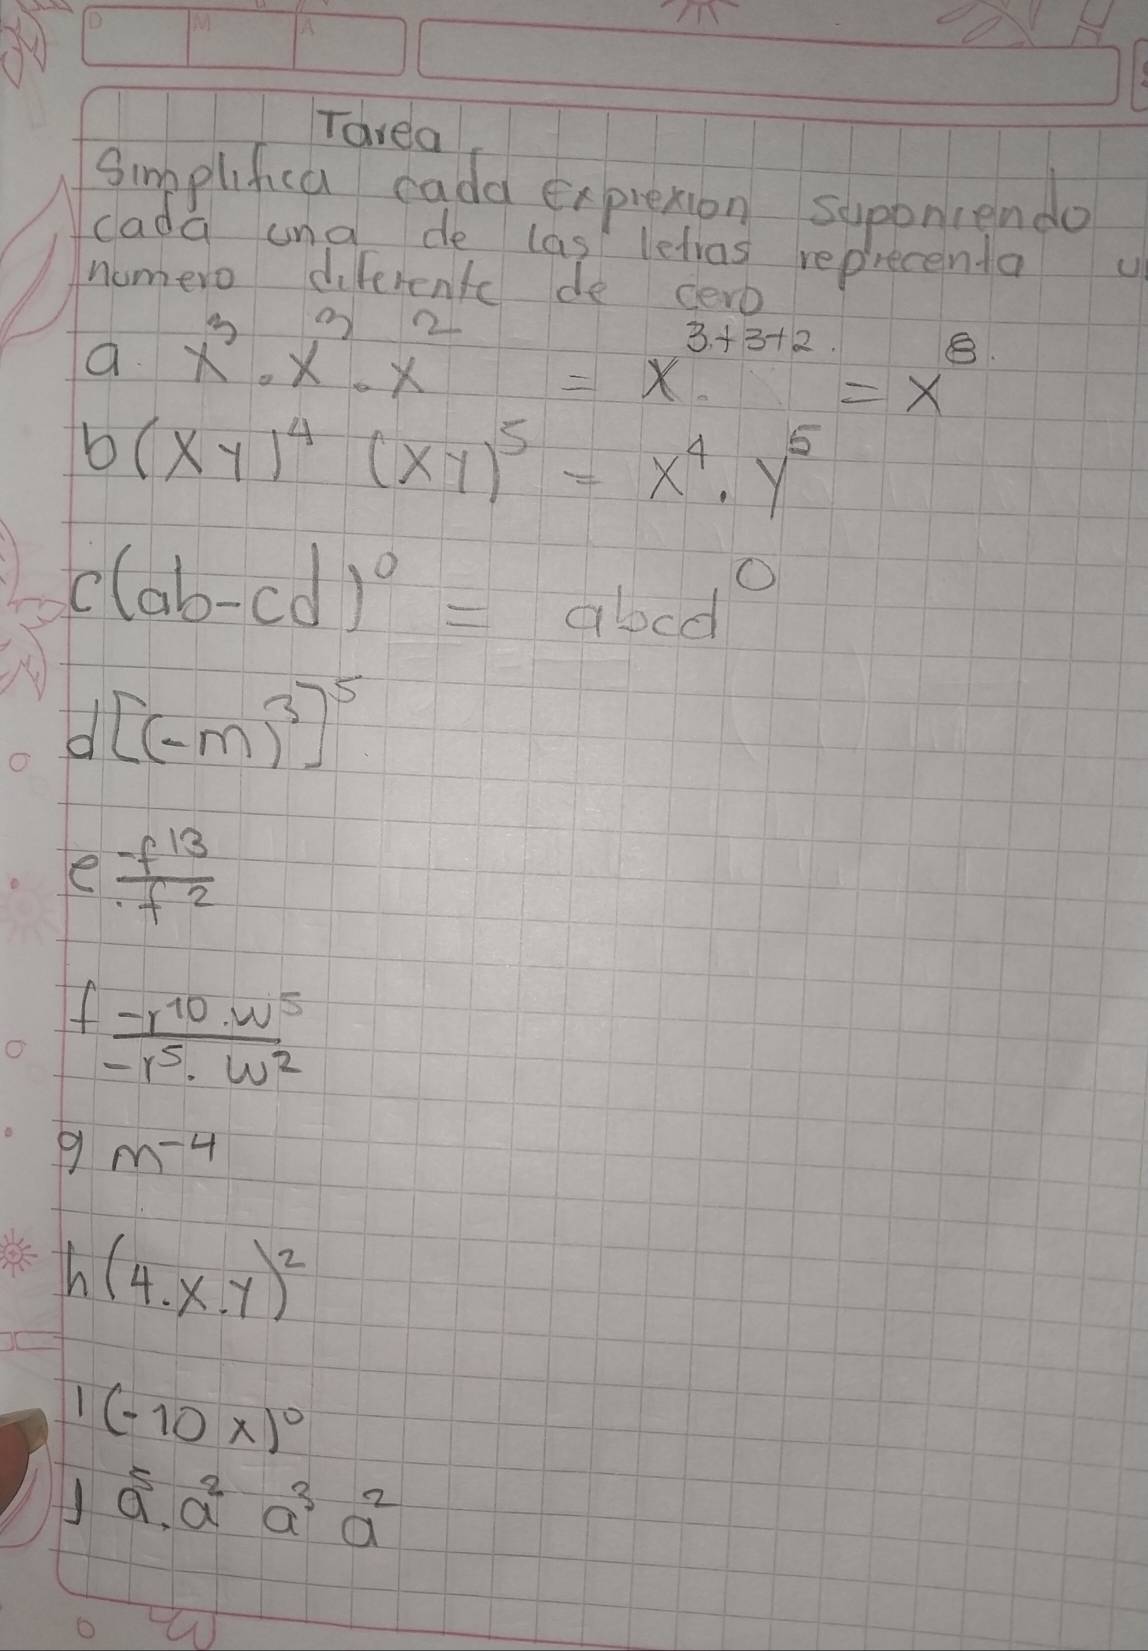 D M A
Tarea
Simplifica cada Exprexion suponiendo
cada una de las letras reprecenta
numero diferente de cero
a. x³ . x³ . x² = x³⁺³⁺² . = x⁸.
b (xy)⁴ (xy)⁵ = x⁴ . y⁵
c (ab-cd)⁰ = abcd⁰
d [(-m)³]⁵
e -f¹³ / .f²
f -r¹⁰ . w⁵ / -r⁵ . w²
g m⁻⁴
h (4.x.y)²
I (-10x)⁰
J a⁵. a² a³ a²